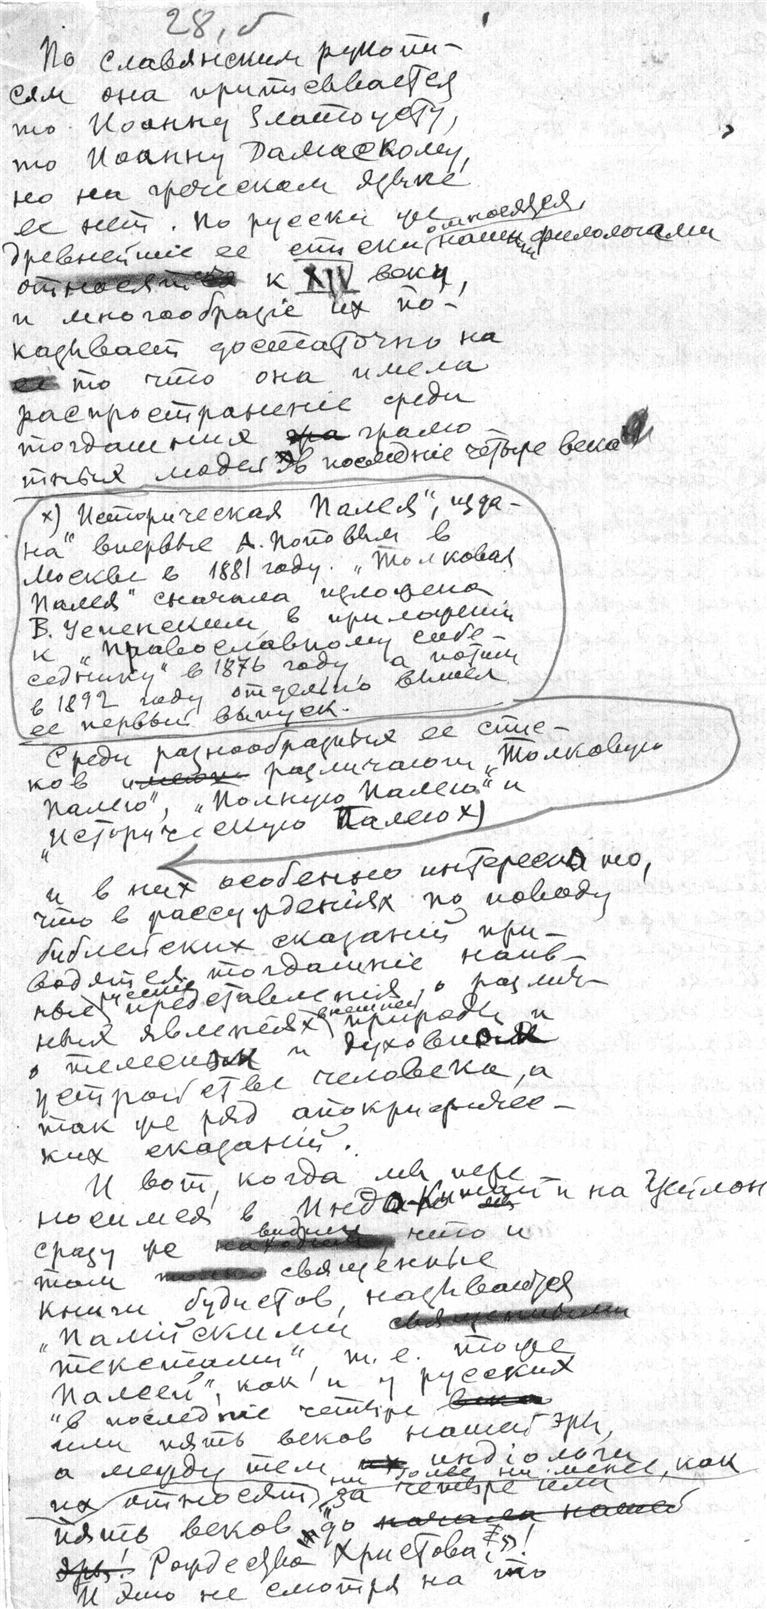 28, б
По славянским рукопи-
сям она приписывается
то Иоанну Златоусту,
то Иоанну Дамаскому,
но на греческом языке
ее нет. По русски уже относятся,
древнейшіе ее списки нашими филологами
относятся к XIV веку,
и многообразіе их по-
казывает достаточно на
то что она имела
распространеніе среди
тогдашних грамо
тных людей в последніе четыре века
х) Историческая Палея", изда-
на" впервые А. Поповым в
Москве в 1881 году. „Толковая
Палея" сначала изложена
В. Успенским в приложеніи
к „Православному собе-
седнику" в 1876 году а потом
в 1892 году отдельно вышел
ее первый выпуск.
Среди разнообразных ее спис-
ков различают „Толковую
Палею", „Полную Палею" и
„Историческую Палею х)
и в них особенно интересно то,
что в рассужденіях по поводу
библейских сказаній при-
водятся тогдашніе наив-
ные представленія о различ-
ных явленіях внешней природы и
о телесном и духовном
устройстве человека, а
так же ряд апокрифичес-
ких сказаній.
И вот, когда мы пере
носимся в Индо-Китай и на Цейлон
сразу же видим что и
там священные
книги будистов, называются
„Палійскими священными
текстами", т. е. тоже
Палеей", как и у русских
"в последніе четыре века
или пять веков нашей эры,
а между тем их индіологи
их относят ни более ни менее, как
за четыре или
пять веков „до начала нашей
эры! Рождества Христова"!
И это не смотря на то